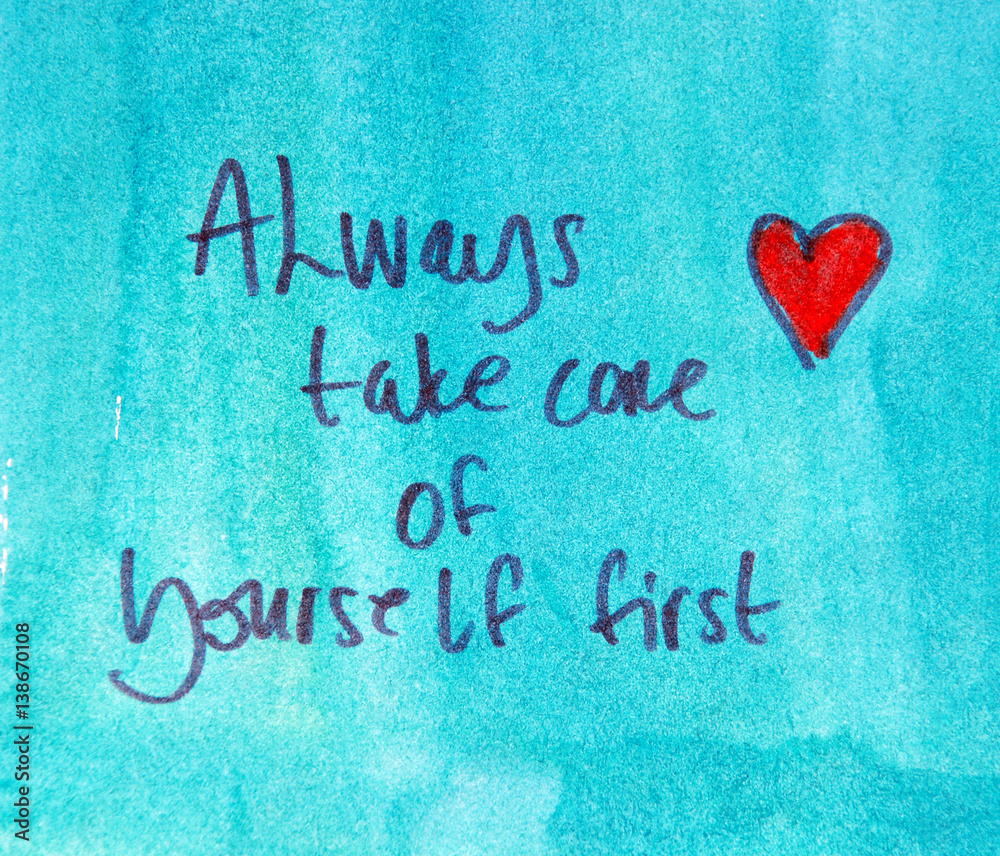 ALways
take care
of
yourself first
Adobe Stock | #138670108